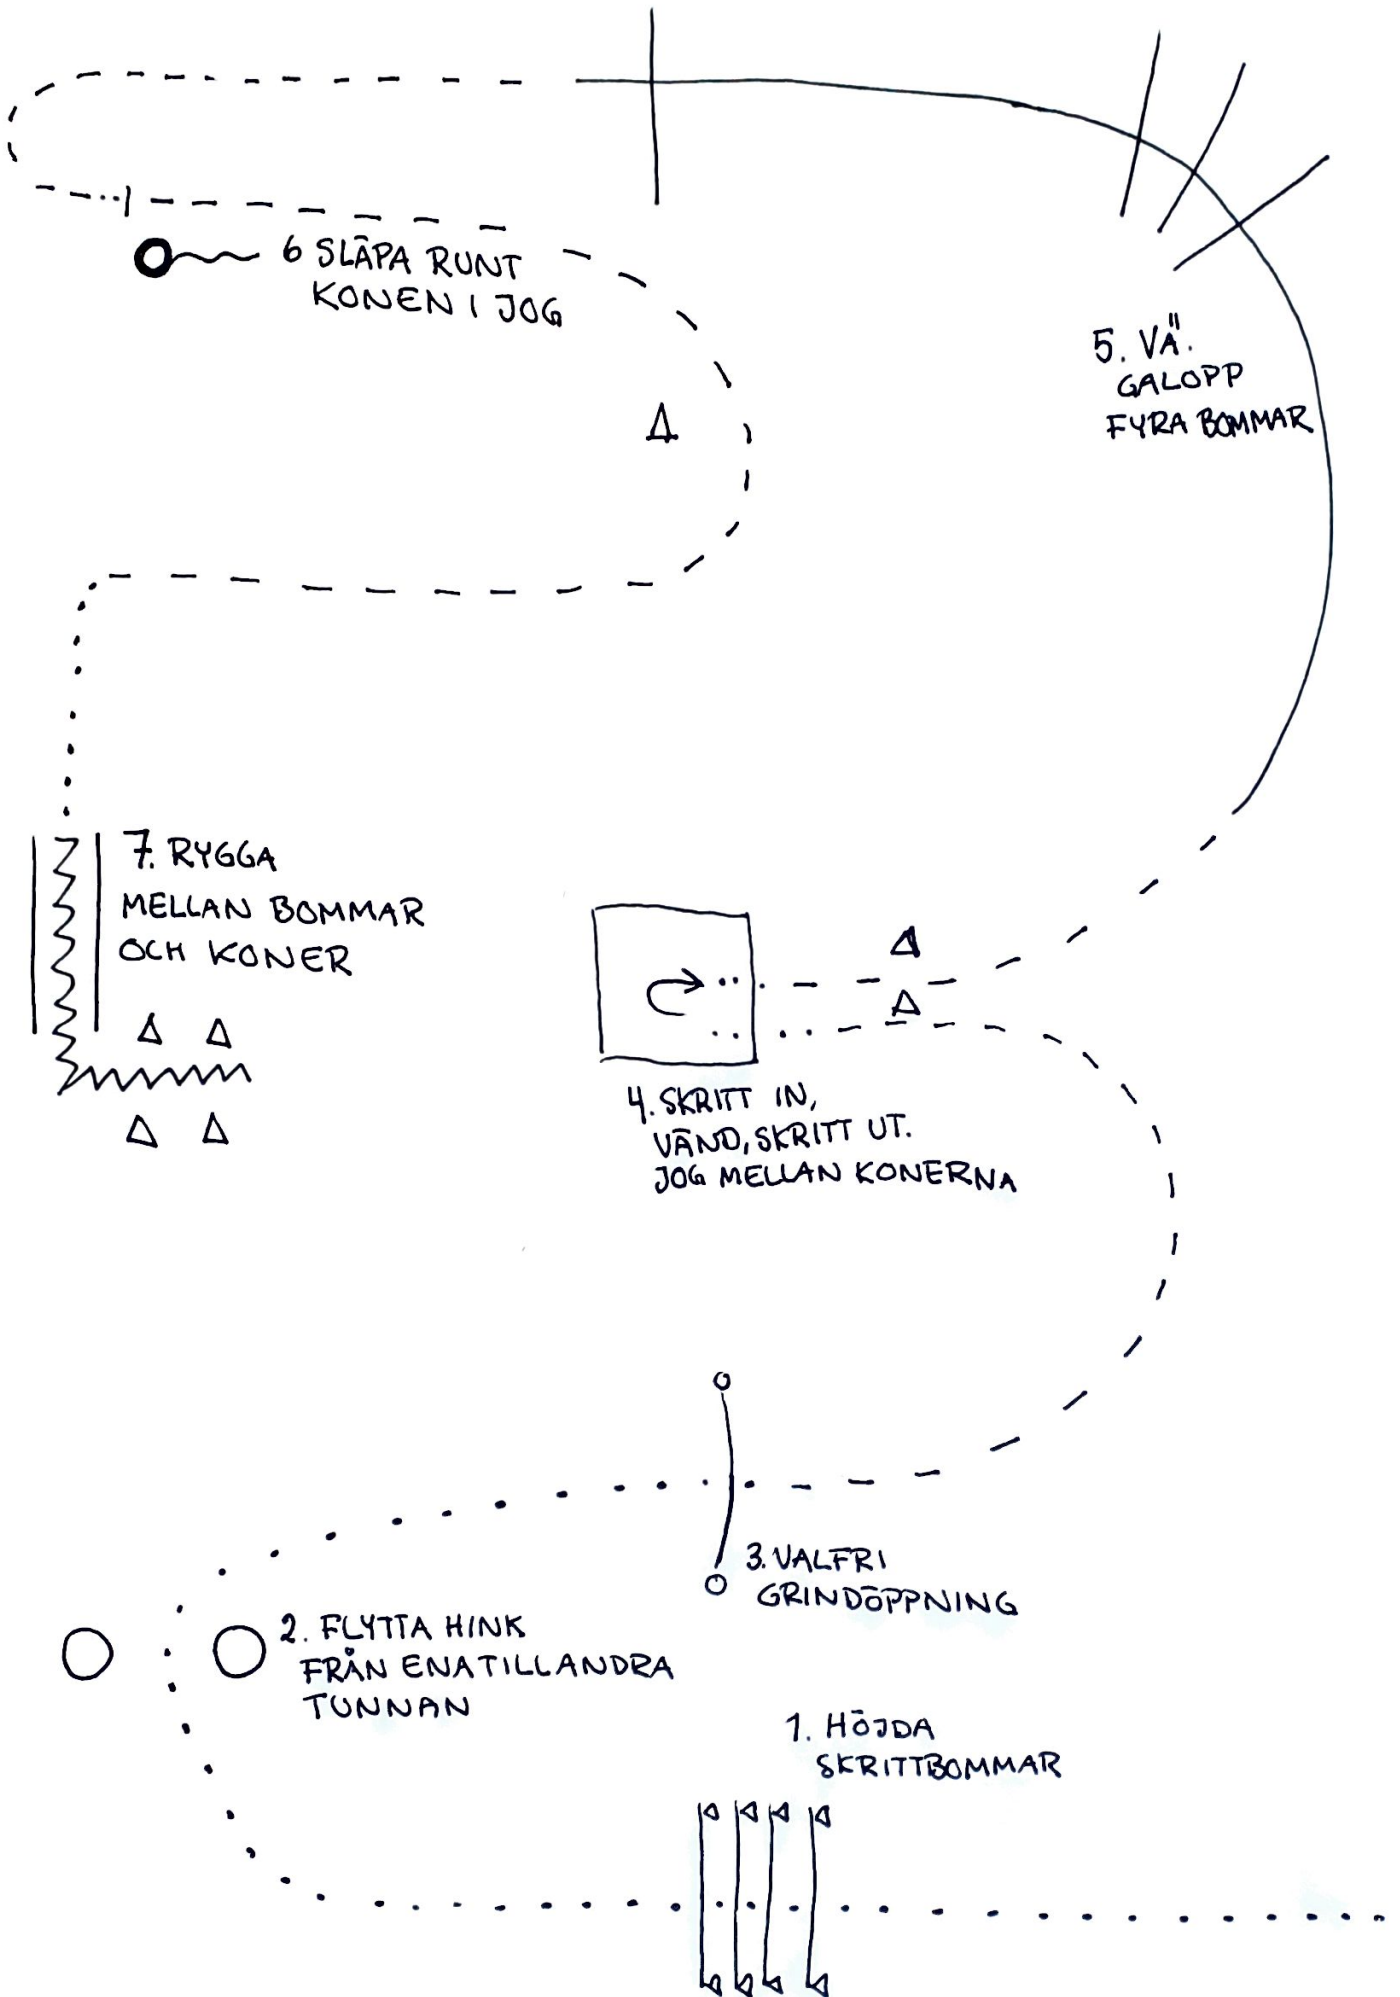 6 SLÄPA RUNT
KONEN I JOG
5. VÄ.
GALOPP
FYRA BOMMAR
7. RYGGA
MELLAN BOMMAR
OCH KONER
4. SKRITT IN,
VÄND, SKRITT UT.
JOG MELLAN KONERNA
3. VALFRI
GRINDÖPPNING
2. FLYTTA HINK
FRÅN ENA TILL ANDRA
TUNNAN
1. HÖJDA
SKRITTBOMMAR